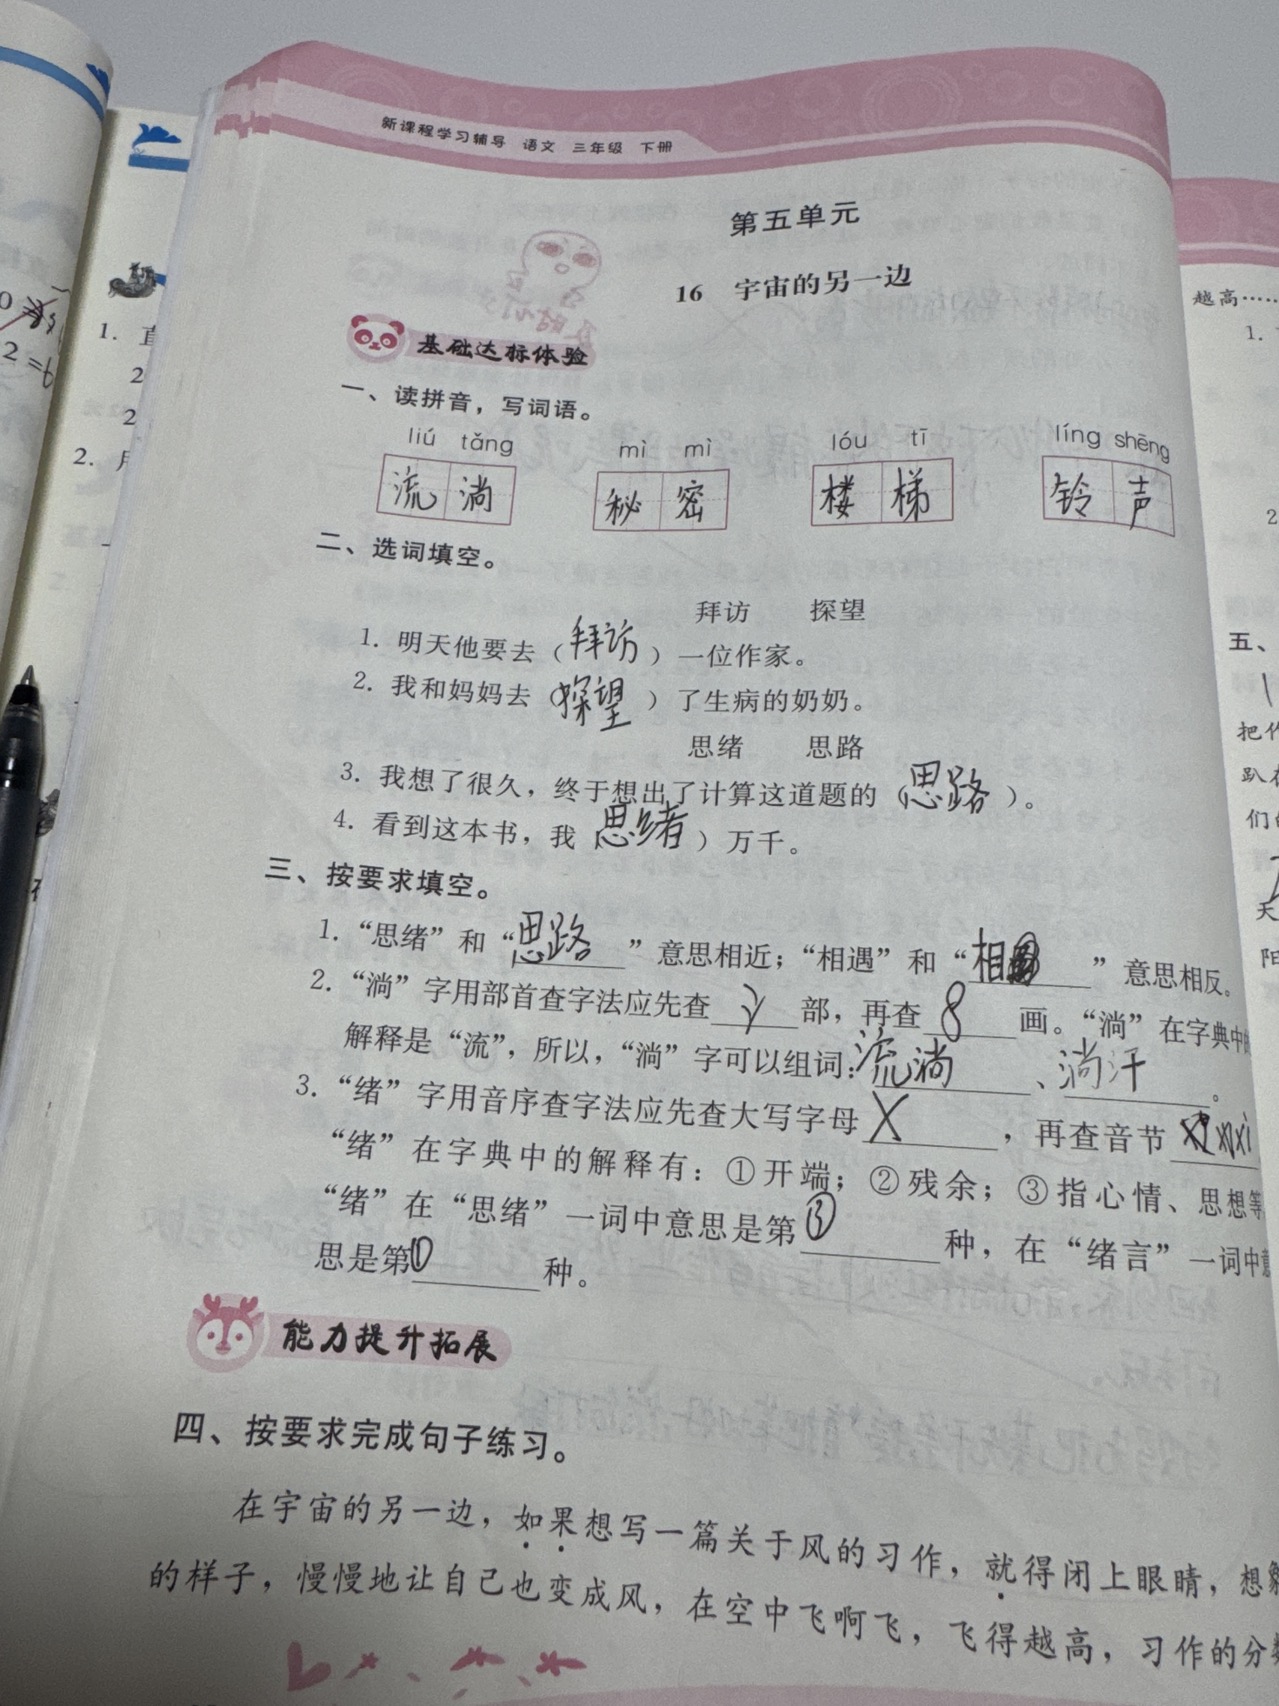 新课程学习辅导 语文 三年级 下册
第五单元
16 宇宙的另一边
基础达标体验
一、读拼音，写词语。
liú tǎng mì mì lóu tī líng shēng
流淌 秘密 楼梯 铃声
二、选词填空。
拜访 探望
1. 明天他要去（拜访）一位作家。
2. 我和妈妈去（探望）了生病的奶奶。
思绪 思路
3. 我想了很久，终于想出了计算这道题的（思路）。
4. 看到这本书，我（思绪）万千。
三、按要求填空。
1. “思绪”和“思路”意思相近；“相遇”和“相”意思相反。
2. “淌”字用部首查字法应先查氵部，再查8画。“淌”在字典中的
解释是“流”，所以，“淌”字可以组词：流淌、淌汗。
3. “绪”字用音序查字法应先查大写字母X，再查音节
“绪”在字典中的解释有：①开端；②残余；③指心情、思想等
“绪”在“思绪”一词中意思是第③种，在“绪言”一词中意
思是第①种。
能力提升拓展
四、按要求完成句子练习。
在宇宙的另一边，如果想写一篇关于风的习作，就得闭上眼睛，想象
的样子，慢慢地让自己也变成风，在空中飞啊飞，飞得越高，习作的分数
越高……
1.
2
五、
把作
趴在
们的
天
阳
1. 直
2
2
2. 月
2=6